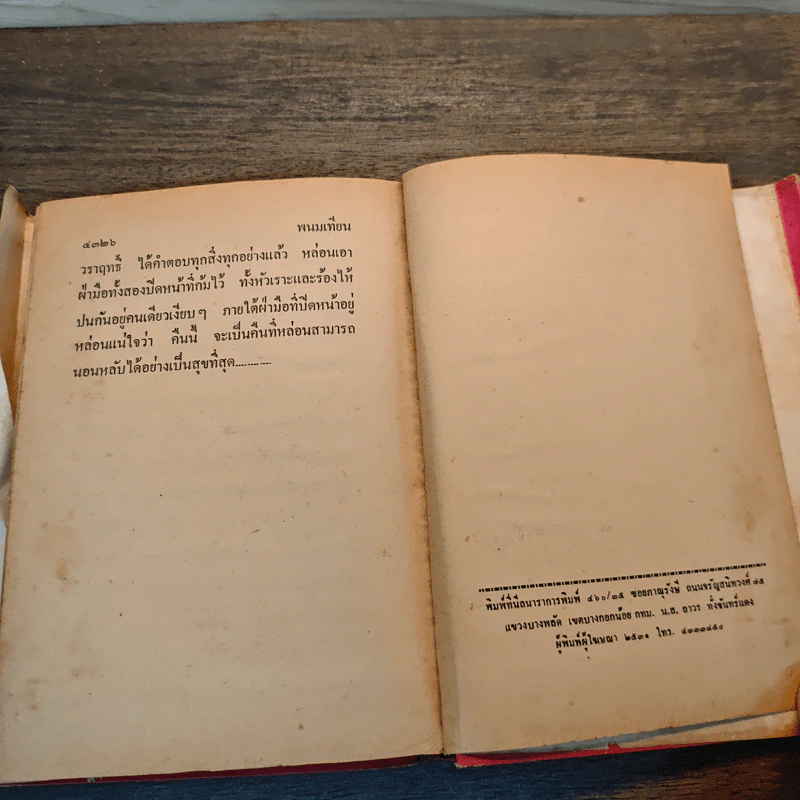 ๔๓๒๖ พนมเทียน
วราฤทธิ์ ได้คำตอบทุกสิ่งทุกอย่างแล้ว หล่อนเอา
ฝ่ามือทั้งสองปิดหน้าที่ก้มไว้ ทั้งหัวเราะและร้องไห้
ปนกันอยู่คนเดียวเงียบๆ ภายใต้ฝ่ามือที่ปิดหน้าอยู่
หล่อนแน่ใจว่า คืนนี้ จะเป็นคืนที่หล่อนสามารถ
นอนหลับได้อย่างเป็นสุขที่สุด............
พิมพ์ที่นีลนาราการพิมพ์ ๔๖๐/๓๕ ซอยภาณุรังษี ถนนจรัญสนิทวงศ์ ๗๕
แขวงบางพลัด เขตบางกอกน้อย กทม. น.ส. ถาวร ทั่งจันทร์แดง
ผู้พิมพ์ผู้โฆษณา ๒๕๓๑ โทร. ๔๓๓๓๘๕๐